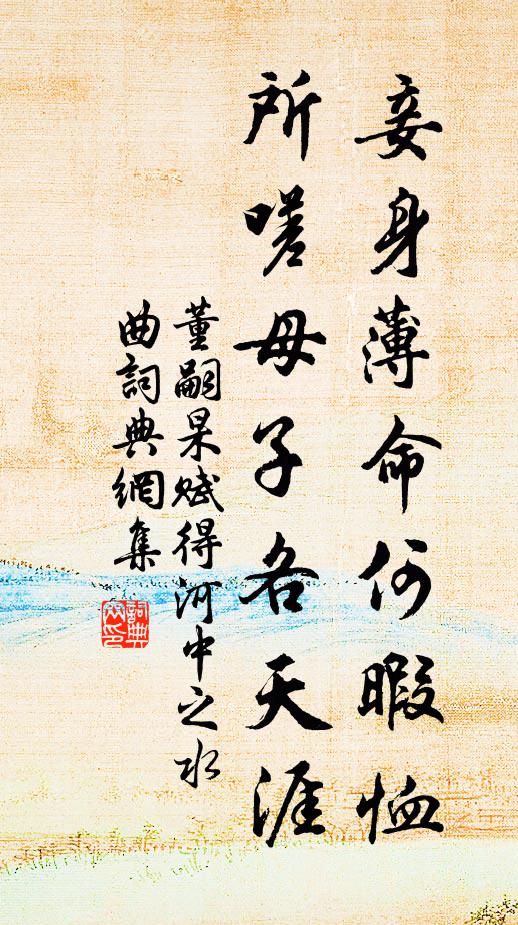 妾身薄命何暇恤
所嗟母子各天涯
董嗣杲赋得河中之水
曲詞典網集
詞典
网印